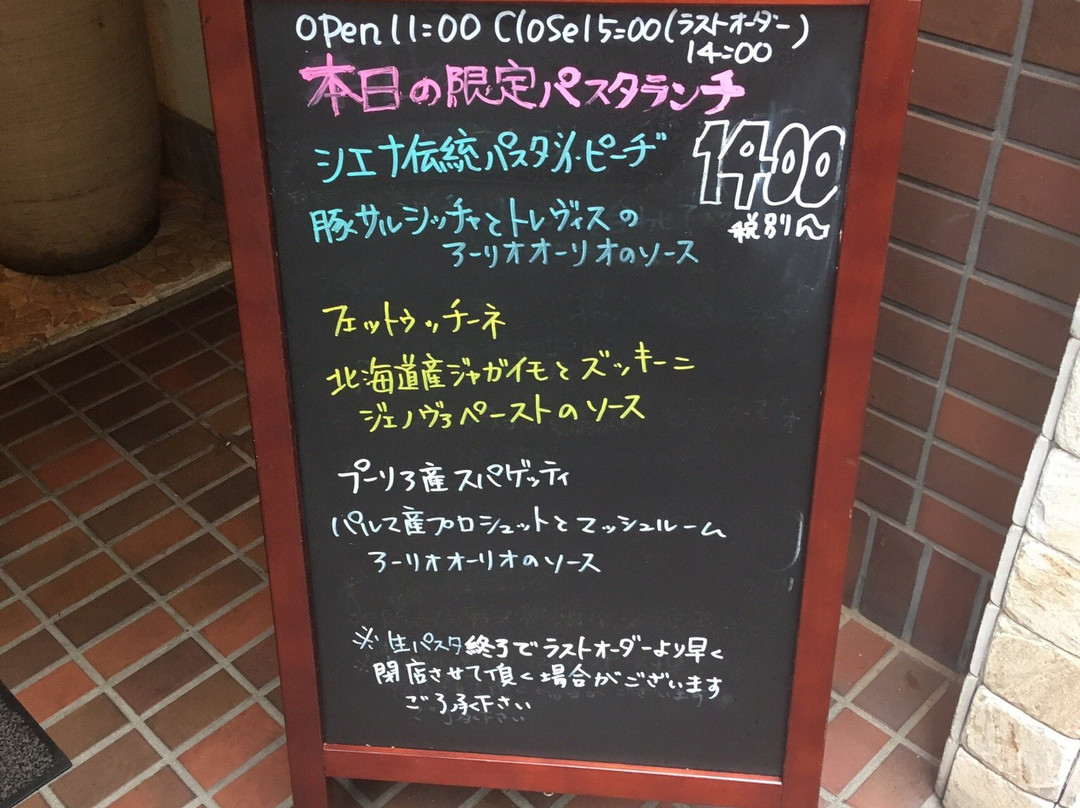 OPen 11:00 Close 15:00 (ラストオーダー 14:00)
本日の限定パスタランチ
1400
税別
シエナ伝統パスタ ピーヂ
豚サルシッチャとトレヴィスの
アーリオオーリオのソース
フェットゥッチーネ
北海道産ジャガイモとズッキーニ
ジェノヴァペーストのソース
プーリア産スパゲッティ
パルマ産プロシュットとマッシュルーム
アーリオオーリオのソース
※生パスタ終了でラストオーダーより早く
閉店させて頂く場合がございます
ご了承下さい